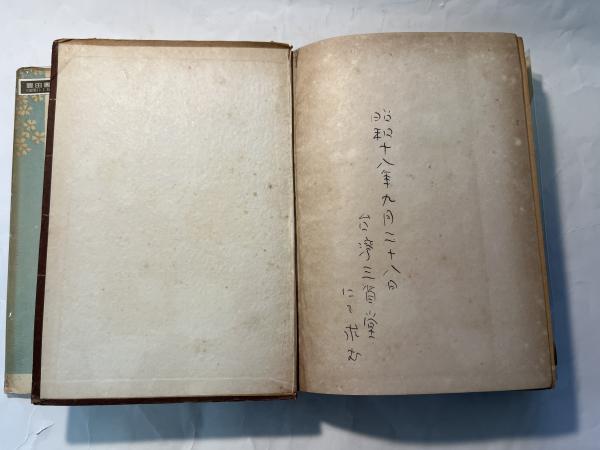 昭和十八年九月二十八日
台湾三省堂
にて求む